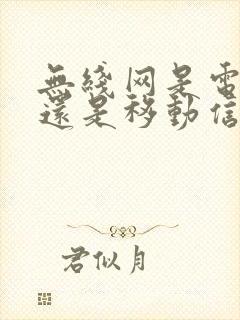 無綫网是電
還是移動信
君似月